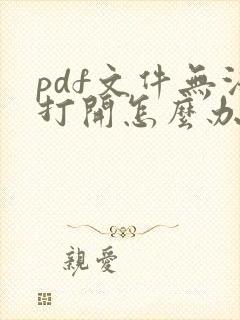 pdf文件無法
打開怎麼办
親愛